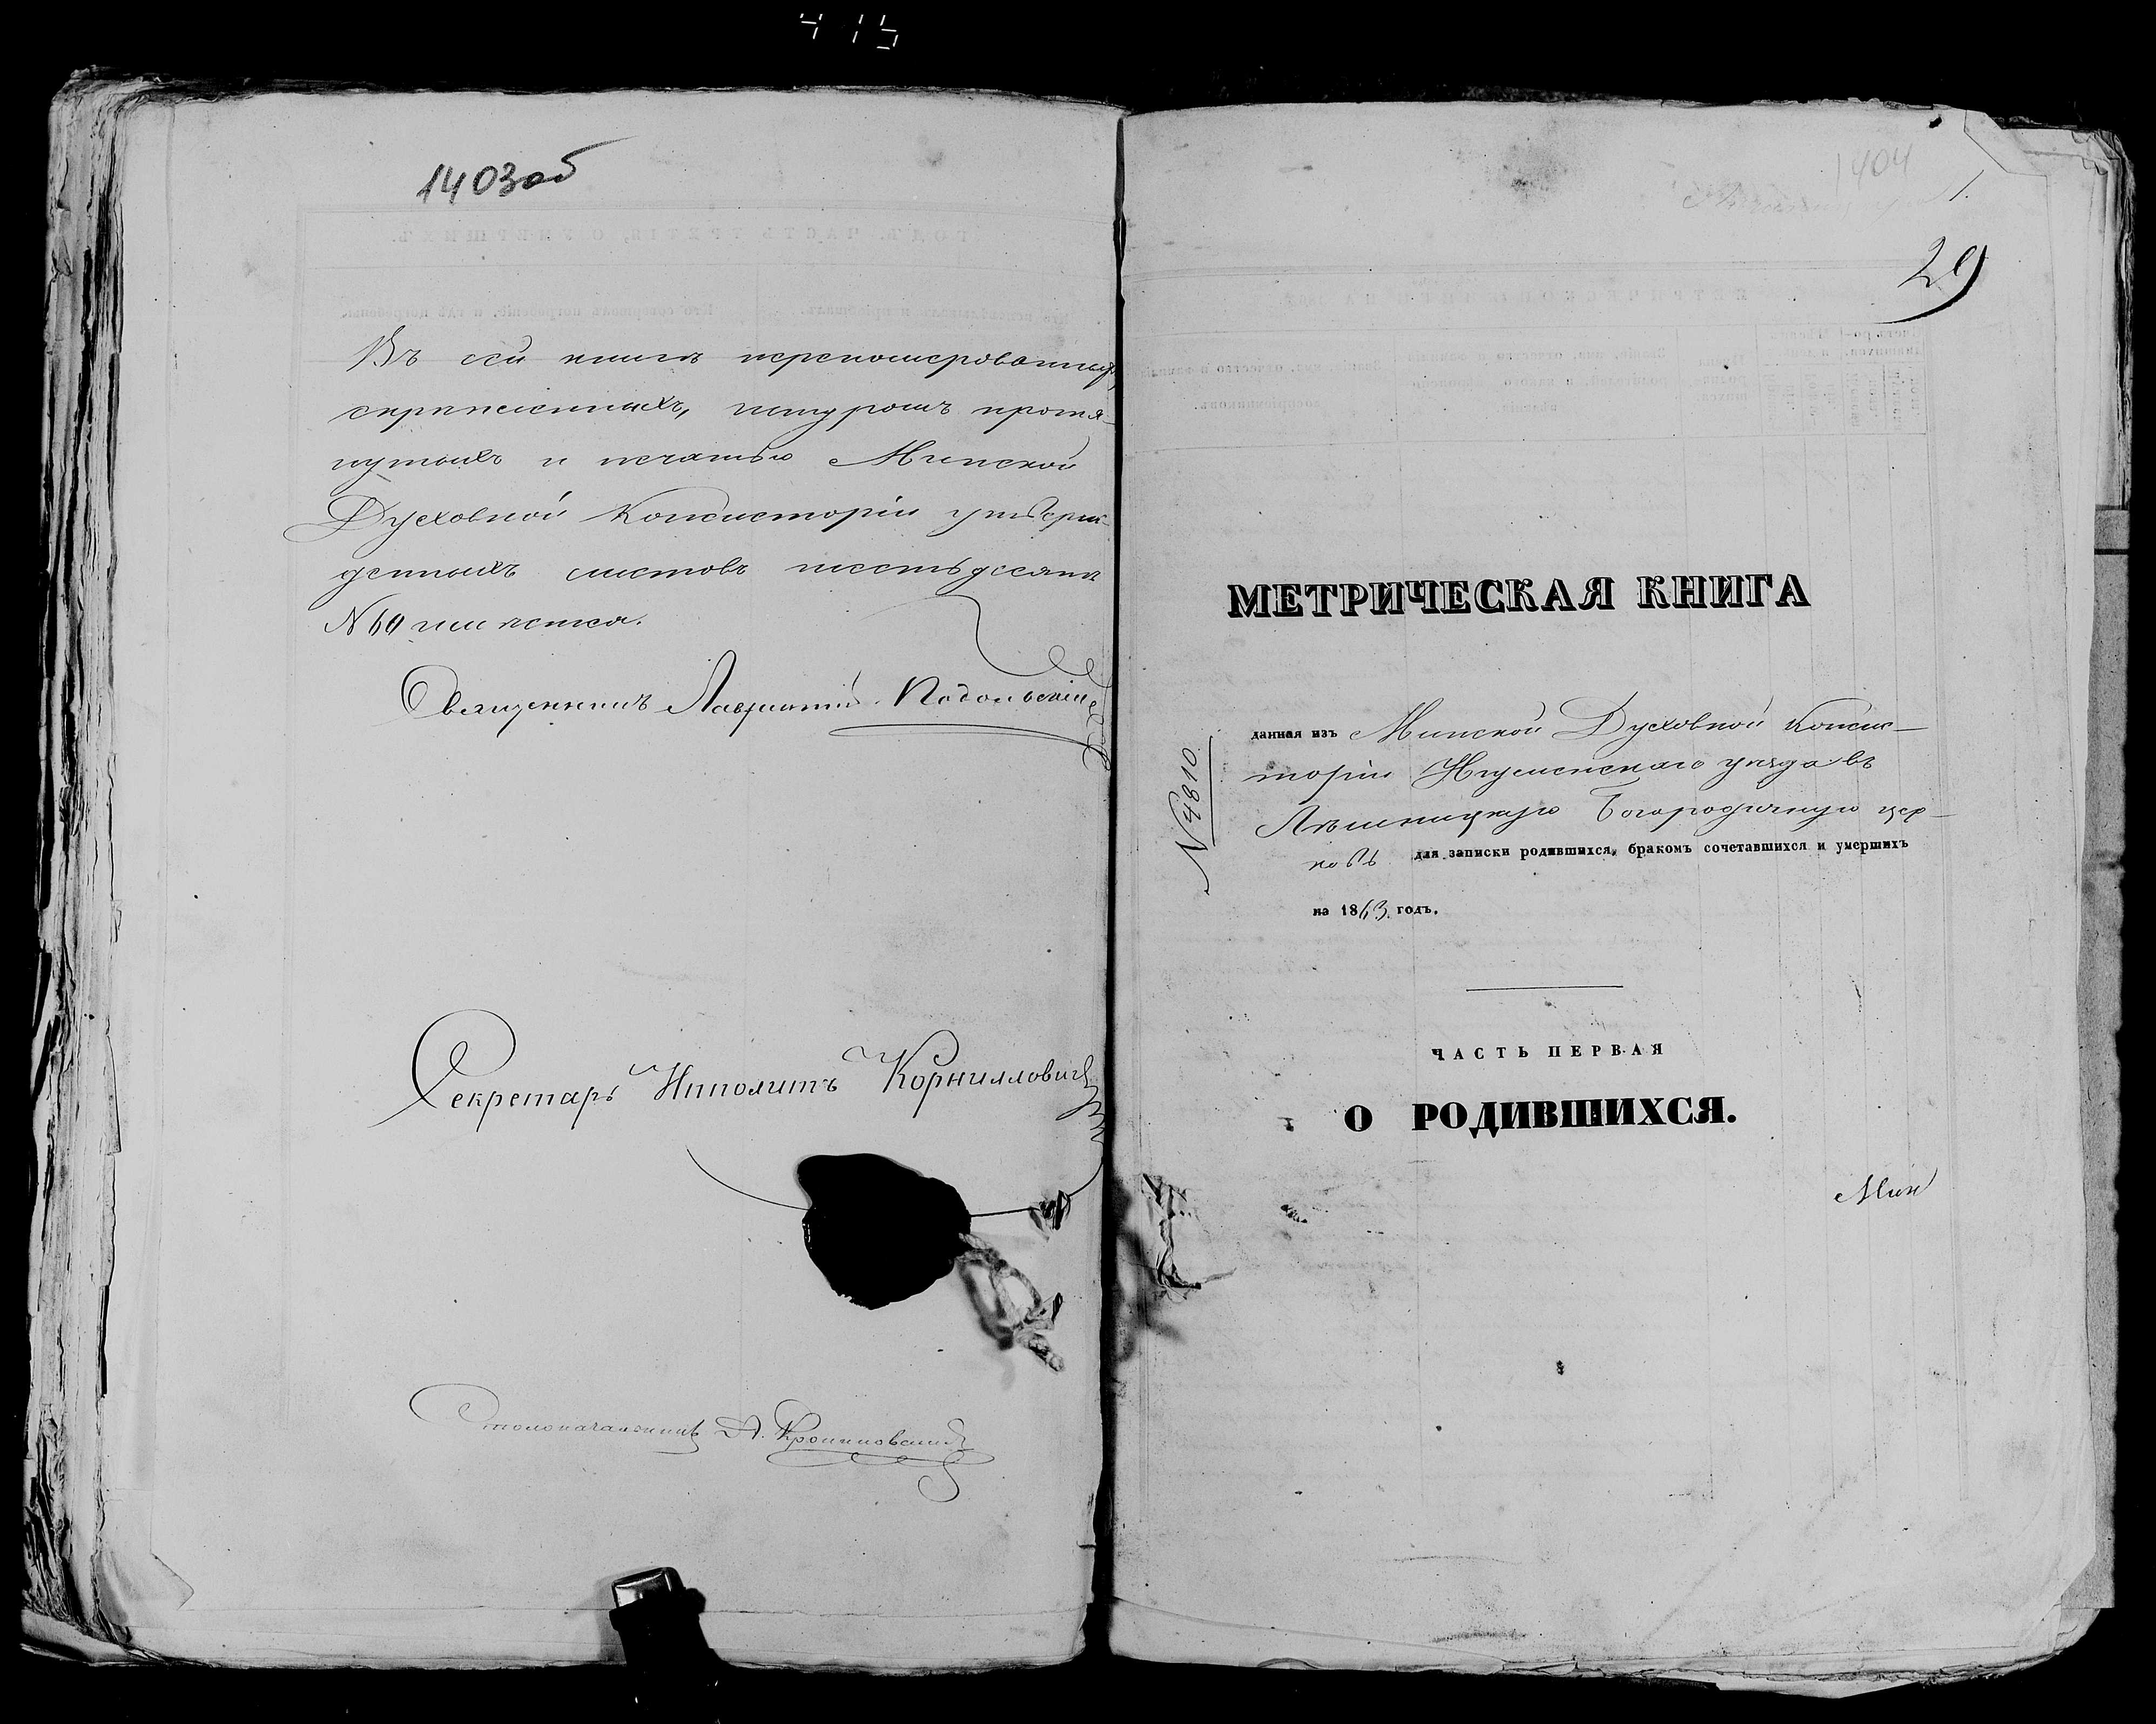 1403об
Въ сей книгѣ перенумерованныхъ,
скрѣпленныхъ, шнуромъ протя-
нутыхъ и печатью Минской
Духовной Консисторіи утверж-
денныхъ листовъ шестьдесятъ
N 60
Священникъ Лаврентій Подольскій
Секретарь Ипполитъ Корниловичъ
Столоначальникъ
1404
1.
29
МЕТРИЧЕСКАЯ КНИГА
N 4810
данная изъ Минской Духовной Консис-
торіи Игуменскаго уѣзда въ
Богородичную цер-
ковь для записки родившихся, бракомъ сочетавшихся и умершихъ
на 1863 годъ.
ЧАСТЬ ПЕРВАЯ
О РОДИВШИХСЯ.
Мин